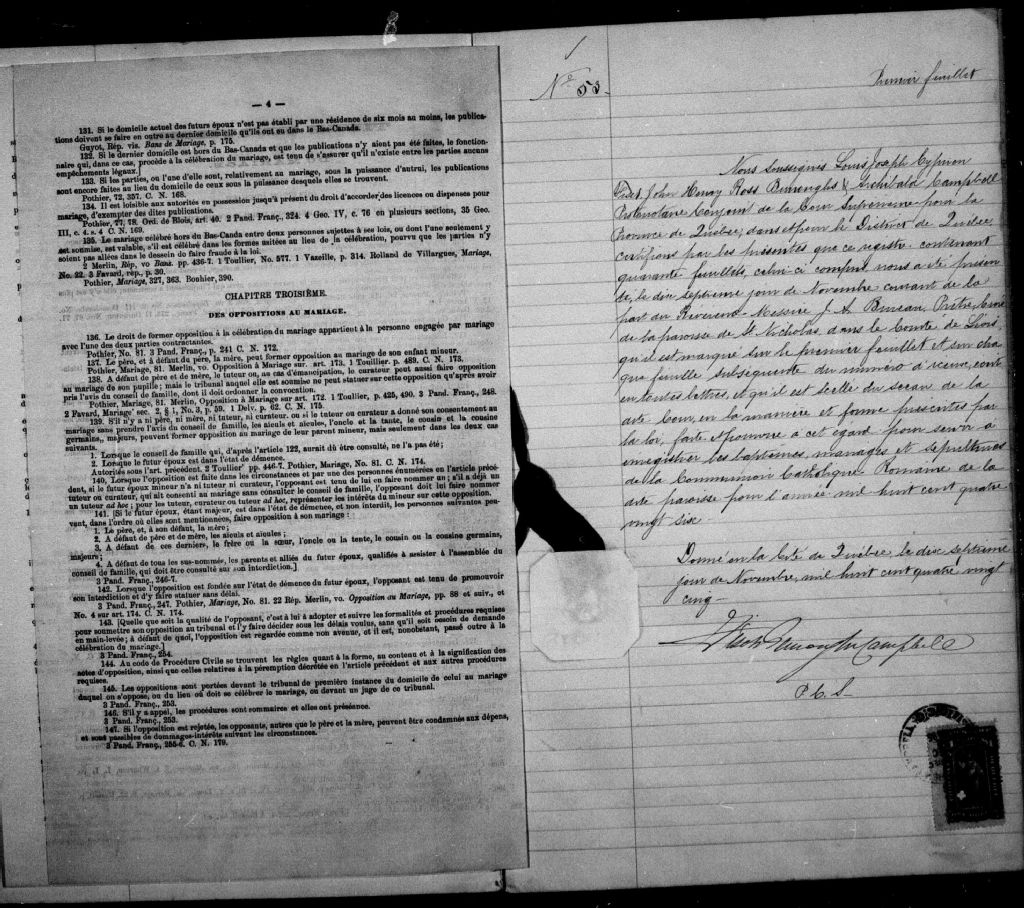 — 4 —
131. Si le domicile actuel des futurs époux n'est pas établi par une résidence de six mois au moins, les publica-
tions doivent se faire en outre au dernier domicile qu'ils ont eu dans le Bas-Canada.
Guyot, Rép. vis. Bans de Mariage, p. 175.
132. Si le dernier domicile est hors du Bas-Canada et que les publications n'y aient pas été faites, le fonction-
naire qui, dans ce cas, procède à la célébration du mariage, est tenu de s'assurer qu'il n'existe entre les parties aucuns
empêchements légaux.
133. Si les parties, ou l'une d'elle sont, relativement au mariage, sous la puissance d'autrui, les publications
sont encore faites au lieu du domicile de ceux sous la puissance desquels elles se trouvent.
Pothier, 72, 357. C. N. 168.
134. Il est loisible aux autorités en possession jusqu'à présent du droit d'accorder des licences ou dispenses pour
mariage, d'exempter des dites publications.
Pothier, 77, 78. Ord. de Blois, art. 40. 2 Pand. Franç., 324. 4 Geo. IV, c. 76 en plusieurs sections, 35 Geo.
III, c. 4. s. 4 C. N. 169.
135. Le mariage célébré hors du Bas-Canda entre deux personnes sujettes à ses lois, ou dont l'une seulement y
est soumise, est valable, s'il est célébré dans les formes usitées au lieu de la célébration, pourvu que les parties n'y
soient pas allées dans le dessein de faire fraude à la loi.
2 Merlin, Rép, vo Bans. pp. 436-7. 1 Toullier, No. 577. 1 Vazeille, p. 314. Rolland de Villargues, Mariage,
No. 22. 3 Favard, rép., p. 30.
Pothier, Mariage, 327, 363. Bouhier, 390.
CHAPITRE TROISIÈME.
DES OPPOSITIONS AU MARIAGE.
136. Le droit de former opposition à la célébration du mariage appartient à la personne engagée par mariage
avec l'une des deux parties contractantes.
Pothier, No. 81. 3 Pand. Franç., p. 241 C. N. 172.
137. Le père, et à défaut du père, la mère, peut former opposition au mariage de son enfant mineur.
Pothier, Mariage, 81. Merlin, vo. Opposition à Mariage sur. art. 173. 1 Touillier. p. 489. C. N. 173.
138. A défaut de père et de mère, le tuteur, ou, au cas d'émancipation, le curateur peut aussi faire opposition
au mariage de son pupille; mais le tribunal auquel elle est soumise ne peut statuer sur cette opposition qu'après avoir
pris l'avis du conseil de famille, dont il doit ordonner la convocation.
Pothier, Mariage, 81. Merlin, Opposition à Mariage sur art. 172. 1 Toullier, p. 425, 490. 3 Pand. Franç., 248.
2 Favard, Mariage' sec. 2, § 1, No. 3, p. 59. 1 Delv. p. 62. C. N. 175.
139. S'il n'y a ni père, ni mère, ni tuteur, ni curateur. ou si le tuteur ou curateur a donné son consentement au
mariage sans prendre l'avis du conseil de famille, les aïeuls et aïeules, l'oncle et la tante, le cousin et la cousine
germains, majeurs, peuvent former opposition au mariage de leur parent mineur, mais seulement dans les deux cas
suivants.
1. Lorsque le conseil de famille qui, d'après l'article 122, aurait dû être consulté, ne l'a pas été;
2. Lorsque le futur époux est dans l'état de démence.
Autorités sous l'art. précédent. 2 Toullier' pp. 446-7. Pothier, Mariage, No. 81. C. N. 174.
140, Lorsque l'opposition est faite dans les circonstances et par une des personnes énumérées en l'article précé-
dent, si le futur époux mineur n'a ni tuteur ni curateur, l'opposant est tenu de lui en faire nommer un; s'il a déjà un
tuteur ou curateur, qui ait consenti au mariage sans consulter le conseil de famille, l'opposant doit lui faire nommer
un tuteur ad hoc; pour les tuteur, curateur ou tuteur ad hoc, représenter les intérêts du mineur sur cette opposition.
141. [Si le futur époux, étant majeur, est dans l'état de démence, et non interdit, les personnes suivantes peu-
vent, dans l'ordre où elles sont mentionnées, faire opposition à son mariage:
1. Le père, et, à son défaut, la mère;
2. A défaut de père et de mère, les aïeuls et aïeules;
3, A défaut de ces derniers, le frère ou la sœur, l'oncle ou la tente, le cousin ou la cousine germains,
majeurs;
4. A défaut de tous les sus-nommés, les parents et alliés du futur époux, qualifiés à assister à l'assemblée du
conseil de famille, qui doit être consulté sur son interdiction.]
3 Pand. Franç., 246-7.
142. Lorsque l'opposition est fondée sur l'état de démence du futur époux, l'opposant est tenu de promouvoir
son interdiction et d'y faire statuer sans délai.
3 Pand. Franç., 247. Pothier, Mariage, No. 81. 22 Rép. Merlin, vo. Opposition au Mariage, pp. 88 et suiv., et
No. 4 sur art. 174. C. N. 174.
143. [Quelque que soit la qualité de l'opposant, c'est à lui à adopter et suivre les formalités et procédures requises
pour soumettre son opposition au tribunal et l'y faire décider sous les délais voulus, sans qu'il soit besoin de demande
en main-levée; à défaut de quoi, l'opposition est regardée comme non avenue, et il est, nonobstant, passé outre à la
célébration du mariage.]
3 Pand. Franç., 254.
144. Au code de Procédure Civile se trouvent les règles quant à la forme, au contenu et à la signification des
actes d'opposition, ainsi que celles relatives à la péremption décrétée en l'article précédent et aux autres procédures
requises.
145. Les oppositions sont portées devant le tribunal de première instance du domicile de celui au mariage
duquel on s'oppose, ou du lieu où doit se célébrer le mariage, ou devant un juge de ce tribunal.
3 Pand. Franç., 253.
146. S'il y a appel, les procédures sont sommaires et elles ont préséance.
3 Pand. Franç., 253.
147. Si l'opposition est rejetée, les opposants, autres que le père et la mère, peuvent être condamnés aux dépens,
et sont passibles de dommages-intérêts suivant les circonstances.
3 Pand. Franç., 255-6. C. N. 179.
1
No 53
Premier feuillet
Nous Soussignés Louis Joseph Cyprien
Fiset, John Henry Ross Burroughs & Archibald Campbell
Protonotaire Conjoint de la Cour Supérieure pour la
Province de Québec, dans et pour le District de Québec
certifions par les présentes que ce registre contenant
quarante feuillets, celui ci compris, nous a été présen
té, le dix septième jour de Novembre courant de la
part du Révérend Messire J. A. Bureau, Prêtre, Curé
de la paroisse de St Nicholas, dans le Comté de Lévis,
qu'il est marqué sur le premier feuillet et sur cha
que feuille subséquente du numéro d'icelui, écrit
en toutes lettres, et qu'il est scellé du sceau de la
dite Cour, en la manière et forme prescrites par
la loi, faite et pourvue à cet égard pour servir à
enregistrer les baptêmes, mariages et sépultures
de la Communion Catholique Romaine de la
dite paroisse pour l'année mil huit cent quatre
vingt six.
Donné en la Cité de Québec le dix septième
jour de Novembre, mil huit cent quatre vingt
cinq —
Fiset Burroughs Campbell
P. C. S.